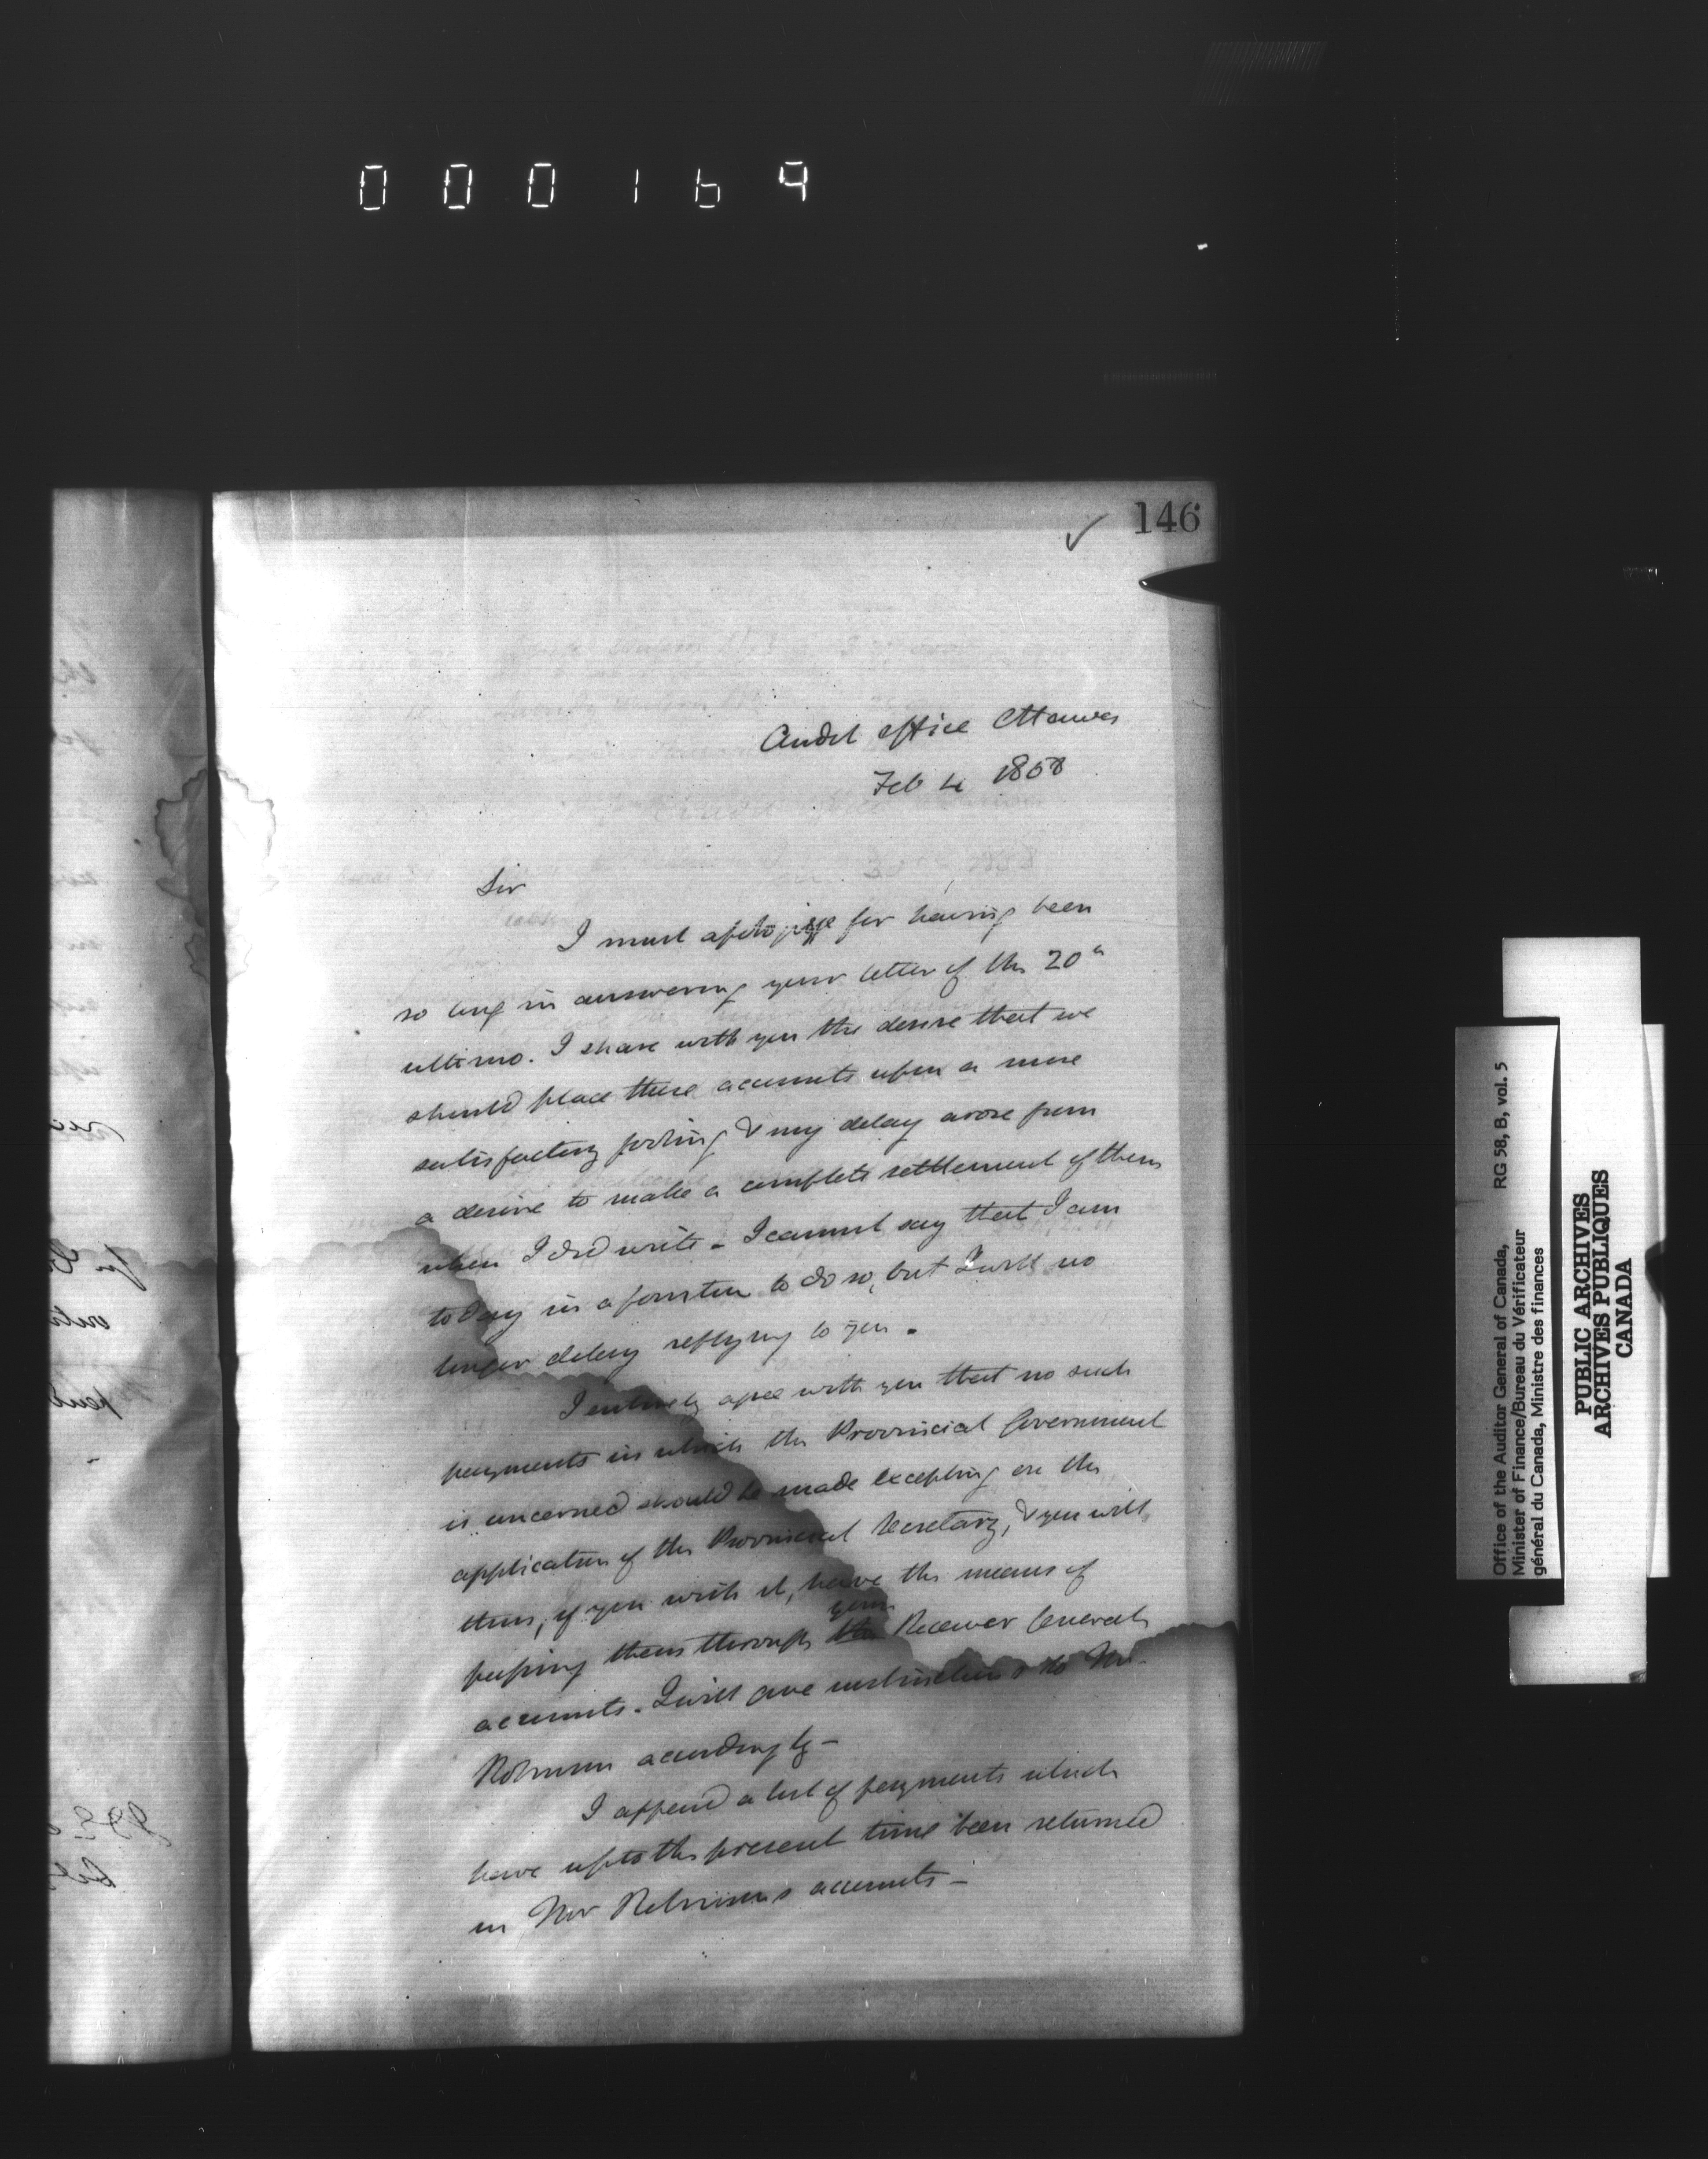 000169
146
Audit office Ottawa
Feb 4 1868
Sir
I must apologize for having been
so long in answering your letter of the 20th
ultimo. I share with you the desire that we
should place these accounts upon a more
satisfactory footing & my delay arose from
a desire to make a complete settlement of them
when I did write - I cannot say that I am
today in a position to do so, but I will no
longer delay replying to you.
I entirely agree with you that no such
payments in which the Provincial Government
is concerned should be made excepting on the
application of the Provincial Secretary, & you will
thus, if you wish it, have the means of
passing them through the your Receiver Generals
accounts. I will give instructions to Mr.
Robinson accordingly -
I append a list of payments which
have up to the present time been returned
in Mr Robinsons accounts -
Office of the Auditor General of Canada, RG 58, B, vol. 5
Minister of Finance/Bureau du Vérificateur
général du Canada, Ministre des finances
PUBLIC ARCHIVES
ARCHIVES PUBLIQUES
CANADA